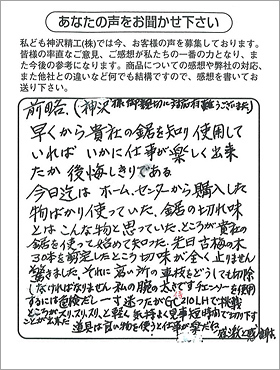 あなたの声をお聞かせ下さい
私ども神沢精工(株)では今、お客様の声を募集しております。
皆様の率直なご意見、ご感想が私たちの一番の力となり、ま
た今後の参考になります。商品についての感想や弊社の対応、
また他社との違いなど何でも結構ですので、感想を書いてお
送り下さい。
前略、(神沢様 御親切に対応有難うございます)
早くから貴社の鋸を知り使用して
いれば いかに仕事が楽しく出来
たか 後悔しきりである
今日迄は ホームセンターから購入した
物ばかり使っていた、鋸の切れ味
とはこんな物と思っていた、ところが貴社の
鋸を使って始めて知った、先日古梅の木
30本を剪定したところ切味が全く止りません
驚きました、それに高い所の 枝をどうしても切除
しなければなりません 私の腕の太さです チェンソーを使用
するには危険だし一寸迷ったがGC210LHで挑戦
ところがスリ、スリ、スリ、と軽く気持よく見事短時間で切り下す
ことが出来た 道具は良い物を使うと仕事が楽だね